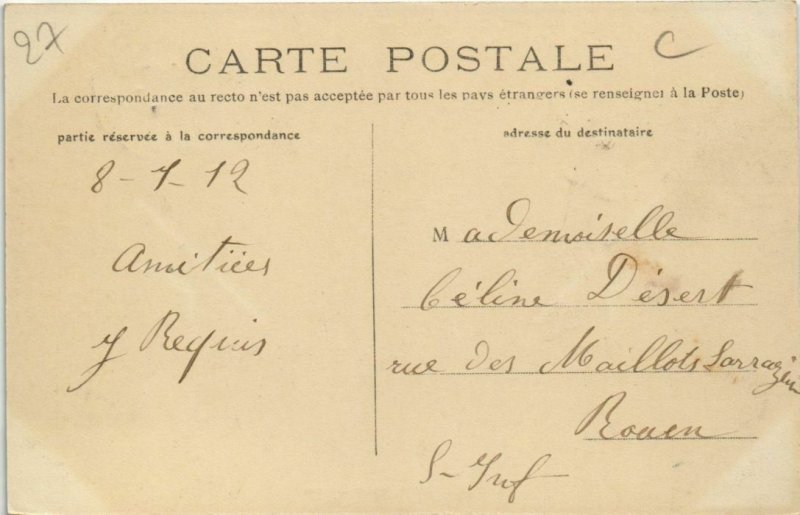 27
C
CARTE POSTALE
La correspondance au recto n'est pas acceptée par tous les pays étrangers (se renseigner à la Poste)
partie réservée à la correspondance
8-7-12
Amitiées
J Requis
adresse du destinataire
Mademoiselle
Céline Désert
rue des Maillots Sarrazin
Rouen
S-Inf